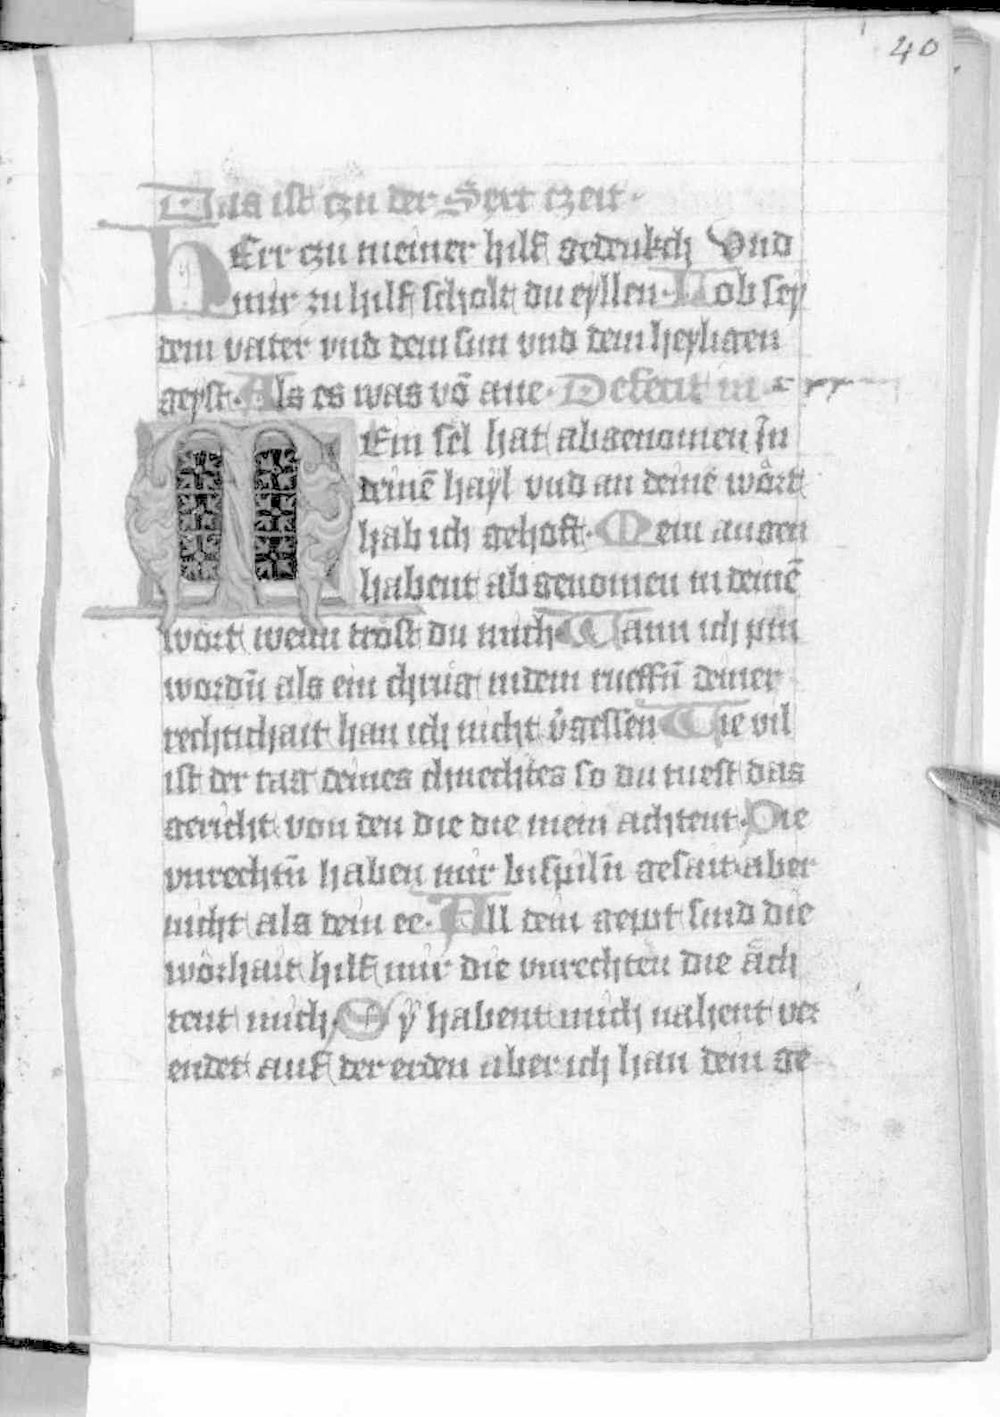 40
Das ist czu der Sext czeit.
HErr czu meiner hilf gedenkch Vnd
mir zu hilf scholt du eyllen. Lob sey
dem vater vnd dem sun vnd dem heyligen
geyst. Als es was vō ane. Defecit in
MEin sel hat abgenomen In
deinē hayl vnd an deinē wort
hab ich gehoft. Mein augen
habent ab genomen in deinē
wort wenn tröst du mich Wann ich pin
wordn̄ als ein chrug in dem rueffn̄ deiner
rechtichait han ich nicht v̉gessen Wie vil
ist der tag deines chnechtes so du tuest das
gericht von den die die mein achtent. Die
vnrechtn̄ haben mir bispiln̄ gesait aber
nicht als dein ee. All dein gepot sind die
worhait hilf mir die vnrechten die ach
tent mich. Sÿ habent mich nahent ver
endet auf der erden aber ich han dein ge